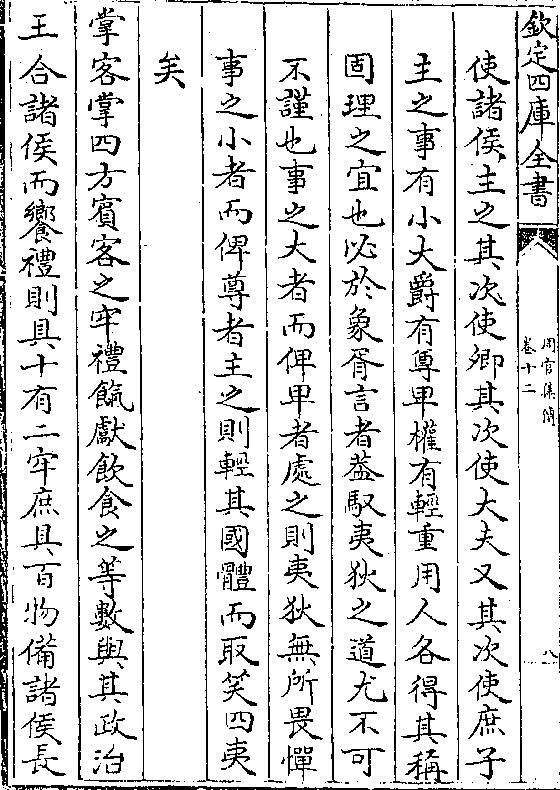 欽定四庫全書
周官集傳
卷十二
八
使諸侯主之其次使卿其次使大夫又其次使庶子
主之事有小大爵有尊卑權有輕重用人各得其稱
固理之宜也必於象胥言者葢馭夷狄之道尤不可
不謹也事之大者而俾卑者處之則夷狄無所畏憚
事之小者而俾尊者主之則輕其國體而取笑四夷
矣
掌客掌四方賓客之牢禮餼獻飲食之等數與其政治
王合諸侯而饗禮則具十有二牢庶具百物備諸侯長